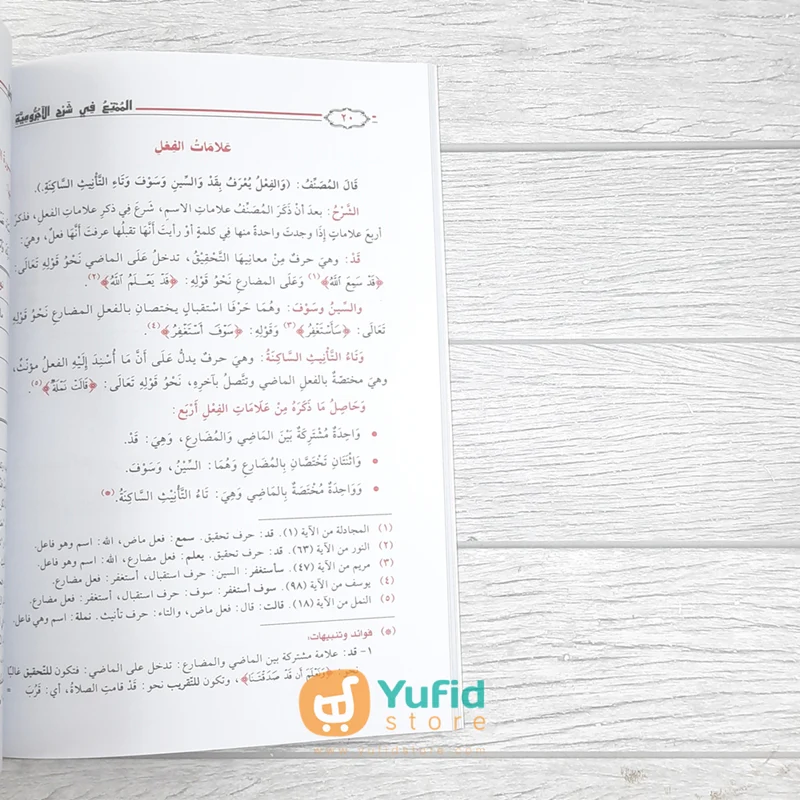 المُمْتِعُ فِي شَرْحِ الآجُرُّومِيَّةِ
٢٠
عَلَامَاتُ الفِعْلِ
قَالَ المُصَنِّفُ: (وَالفِعْلُ يُعْرَفُ بِقَدْ وَالسِّينِ وَسَوْفَ وَتَاءِ التَّأْنِيثِ السَّاكِنَةِ.).
الشَّرْحُ: بعدَ أنْ ذَكَرَ المُصَنِّفُ علاماتِ الاسمِ، شَرَعَ فِي ذكرِ علاماتِ الفعلِ، فذكرَ
أربعَ علاماتٍ إذَا وجدتَ واحدةً منها فِي كلمةٍ أوْ رأيتَ أنَّهَا تقبلُها عرفتَ أنَّهَا فعلٌ، وهيَ:
قَدْ: وهيَ حرفٌ مِنْ معانِيهَا التَّحْقِيقُ، تدخلُ عَلَى الماضِي نَحْوُ قَوْلِهِ تَعَالَى:
﴿قَدْ سَمِعَ اللَّهُ﴾(١) وَعَلَى المضارعِ نَحْوُ قَوْلِهِ: ﴿قَدْ يَعْلَمُ اللَّهُ﴾(٢).
والسِّينُ وسَوْفَ: وهُمَا حَرْفَا استقبالٍ يختصانِ بالفعلِ المضارعِ نَحْوُ قَوْلِهِ
تَعَالَى: ﴿سَأَسْتَغْفِرُ﴾(٣) وَقَوْلِهِ: ﴿سَوْفَ أَسْتَغْفِرُ﴾(٤).
وَتَاءُ التَّأْنِيثِ السَّاكِنَةُ: وهيَ حرفٌ يدلُّ علَى أنَّ مَا أُسْنِدَ إِلَيْهِ الفعلُ مؤنثٌ،
وهيَ مختصّةٌ بالفعلِ الماضِي وتتَّصلُ بآخرِهِ، نَحْوُ قَوْلِهِ تَعَالَى: ﴿قَالَتْ نَمْلَةٌ﴾(٥).
وَحَاصِلُ مَا ذَكَرَهُ مِنْ عَلَامَاتِ الفِعْلِ أَرْبَع:
• وَاحِدَةٌ مُشْتَرِكَةٌ بَيْنَ المَاضِي وَالمُضَارِعِ، وَهِيَ: قَدْ.
• وَاثْنَتَانِ تَخْتَصَّانِ بِالمُضَارِعِ وَهُمَا: السِّيْنُ، وَسَوْفَ.
• وَوَاحِدَةٌ مُخْتَصَةٌ بِالمَاضِي وَهِيَ: تَاءُ التَّأْنِيْثِ السَّاكِنَةُ.(*)
(١) المجادلة من الآية (١). قد: حرف تحقيق. سمع: فعل ماض، الله: اسم وهو فاعل.
(٢) النور من الآية (٦٣). قد: حرف تحقيق. يعلم: فعل مضارع، الله: اسم وهو فاعل.
(٣) مريم من الآية (٤٧). سأستغفر: السين: حرف استقبال، أستغفر: فعل مضارع.
(٤) يوسف من الآية (٩٨). سوف أستغفر: سوف: حرف استقبال، أستغفر: فعل مضارع.
(٥) النمل من الآية (١٨). قالت: قال: فعل ماض، والتاء: حرف تأنيث. نملة: اسم وهي فاعل.
(*) فوائد وتنبيهات:
١- قد: علامة مشتركة بين الماضي والمضارع: تدخل على الماضي: فتكون للتحقيق غالبًا
نحو: ﴿وَنَعْلَمَ أَن قَدْ صَدَقْتَنَا﴾، وتكون للتقريب نحو: قَدْ قامتِ الصلاةُ، أي: قَرُبَ =
Yufid
store